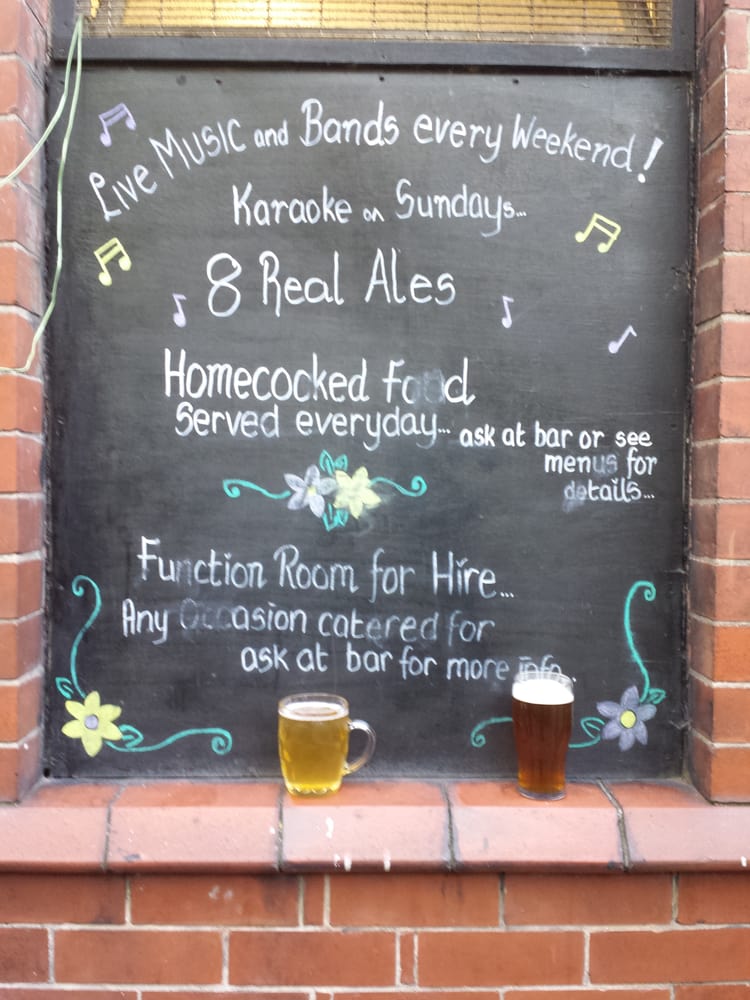 Live Music and Bands every Weekend!
Karaoke on Sundays...
8 Real Ales
Homecocked food
Served everyday... ask at bar or see
menus for
details...
Function Room for Hire...
Any Occasion catered for
ask at bar for more info...